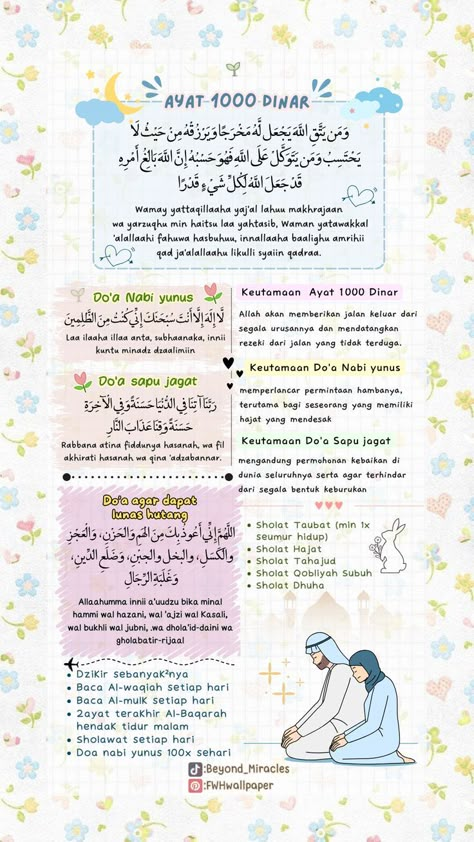 AYAT 1000 DINAR
وَمَن يَتَّقِ اللَّهَ يَجْعَل لَّهُ مَخْرَجًا وَيَرْزُقْهُ مِنْ حَيْثُ لَا
يَحْتَسِبُ وَمَن يَتَوَكَّلْ عَلَى اللَّهِ فَهُوَ حَسْبُهُ إِنَّ اللَّهَ بَالِغُ أَمْرِهِ
قَدْ جَعَلَ اللَّهُ لِكُلِّ شَيْءٍ قَدْرًا
Wamay yattaqillaaha yaj'al lahuu makhrajaan
wa yarzuqhu min haitsu laa yahtasib, Waman yatawakkal
'alallaahi fahuwa hasbuhuu, innallaaha baalighu amrihii
qad ja'alallaahu likulli syaiin qadraa.
Do'a Nabi yunus
لَا إِلَهَ إِلَّا أَنْتَ سُبْحَنَكَ إِنِّي كُنْتُ مِنَ الظَّلِمِينَ
Laa ilaaha illaa anta, subhaanaka, innii
kuntu minadz dzaalimiin
Do'a sapu jagat
رَبَّنَا آتِنَا فِي الدُّنْيَا حَسَنَةً وَفِي الْآخِرَةِ
حَسَنَةً وَقِنَا عَذَابَ النَّارِ
Rabbana atina fiddunya hasanah, wa fil
akhirati hasanah wa qina 'adzabannar.
Do'a agar dapat
lunas hutang
اللَّهُمَّ إِنِّي أَعُوذُ بِكَ مِنَ الْهَمِّ وَالْحَزَنِ، وَالْعَجْزِ
وَالْكَسَلِ، وَالْبُخْلِ وَالْجُبْنِ، وَضَلَعِ الدَّيْنِ،
وَغَلَبَةِ الرِّجَالِ
Allaahumma innii a'uudzu bika minal
hammi wal hazani, wal 'ajzi wal Kasali,
wal bukhli wal jubni, .wa dhola'id-daini wa
gholabatir-rijaal
Keutamaan Ayat 1000 Dinar
Allah akan memberikan jalan keluar dari
segala urusannya dan mendatangkan
rezeki dari jalan yang tidak terduga.
Keutamaan Do'a Nabi yunus
memperlancar permintaan hambanya,
terutama bagi seseorang yang memiliki
hajat yang mendesak
Keutamaan Do'a Sapu jagat
mengandung permohonan kebaikan di
dunia seluruhnya serta agar terhindar
dari segala bentuk keburukan
• Sholat Taubat (min 1x
seumur hidup)
• Sholat Hajat
• Sholat Tahajud
• Sholat Qobliyah Subuh
• Sholat Dhuha
• Dzikir sebanyak²nya
• Baca Al-waqiah setiap hari
• Baca Al-mulk setiap hari
• 2ayat terakhir Al-Baqarah
hendak tidur malam
• Sholawat setiap hari
• Doa nabi yunus 100x sehari
:Beyond_Miracles
:FWHwallpaper